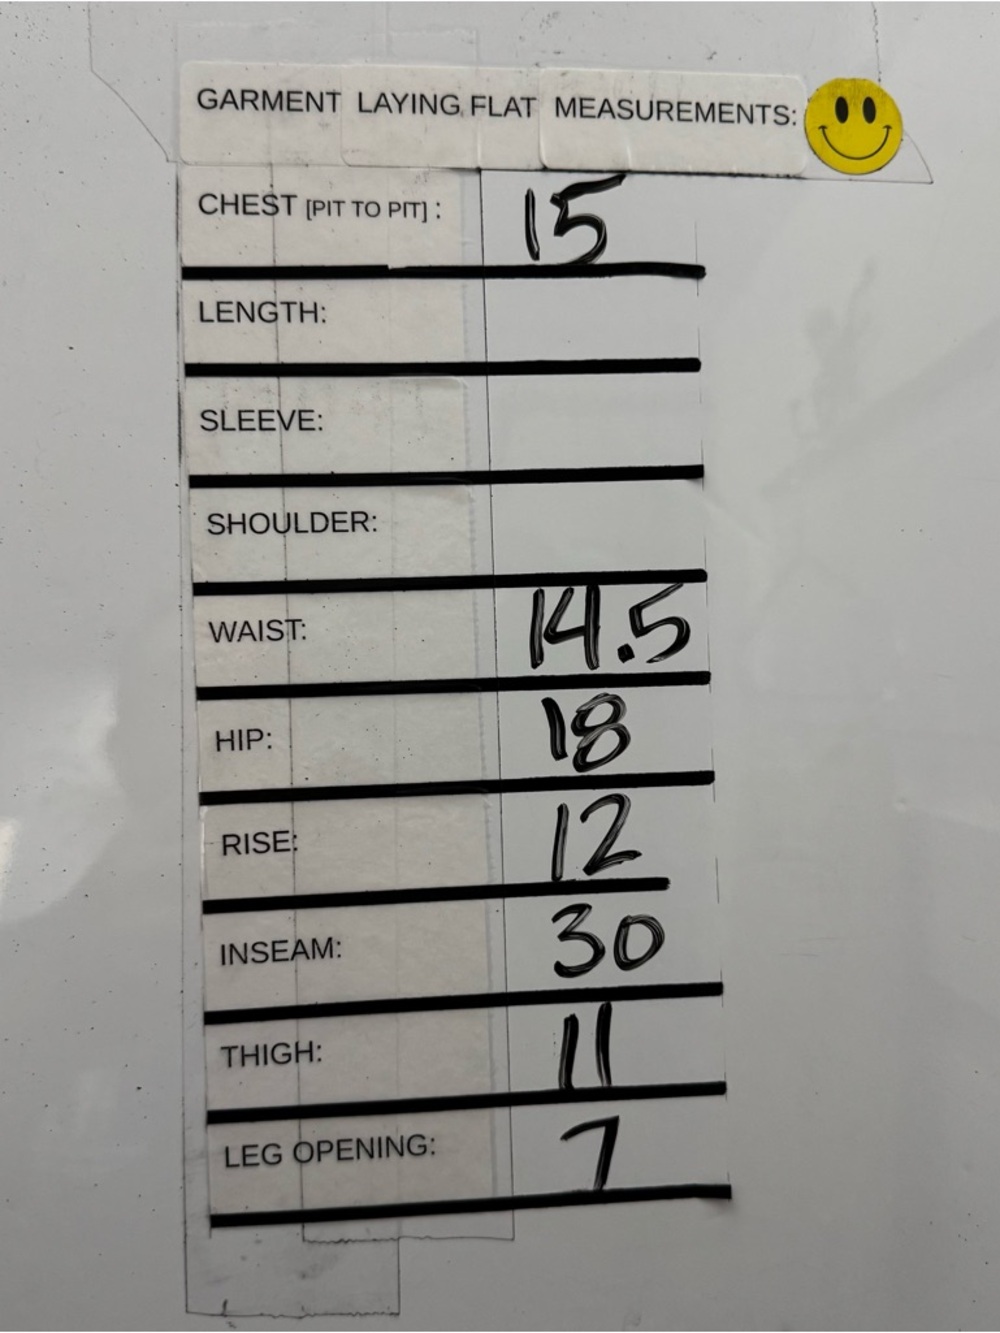 GARMENT LAYING FLAT MEASUREMENTS:
CHEST [PIT TO PIT] : 15
LENGTH:
SLEEVE:
SHOULDER:
WAIST: 14.5
HIP: 18
RISE: 12
INSEAM: 30
THIGH: 11
LEG OPENING: 7